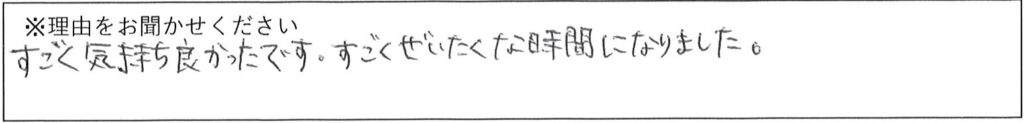 ※理由をお聞かせください
すごく気持ち良かったです。すごくぜいたくな時間になりました。